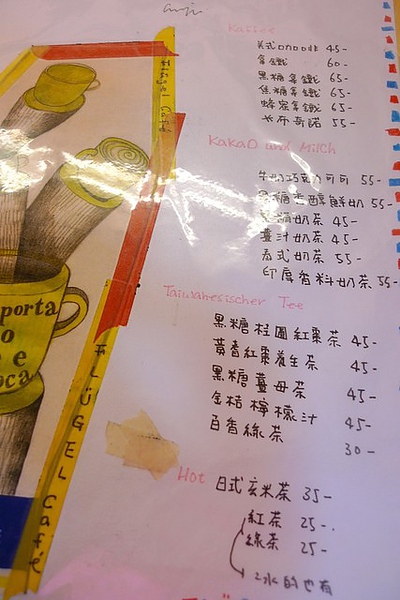 Kaffee
美式 45-
拿鐵 60-
黑糖拿鐵 65-
焦糖拿鐵 65-
蜂蜜拿鐵 65-
卡布奇諾 55-
KaKaO und Milch
牛奶巧克力可可 55-
黑糖香醇鮮奶 55-
奶茶 45-
薑汁奶茶 45-
泰式奶茶 55-
印度香料奶茶 55-
Taiwanesischer Tee
黑糖桂圓紅棗茶 45-
黃耆紅棗養生茶 45-
黑糖薑母茶 45-
金桔檸檬汁 45-
百香綠茶 30-
Hot 日式玄米茶 35-
紅茶 25-
綠茶 25-
冰的也有
porta
o
e
oca
FLÜGEL Café
Flügel Café